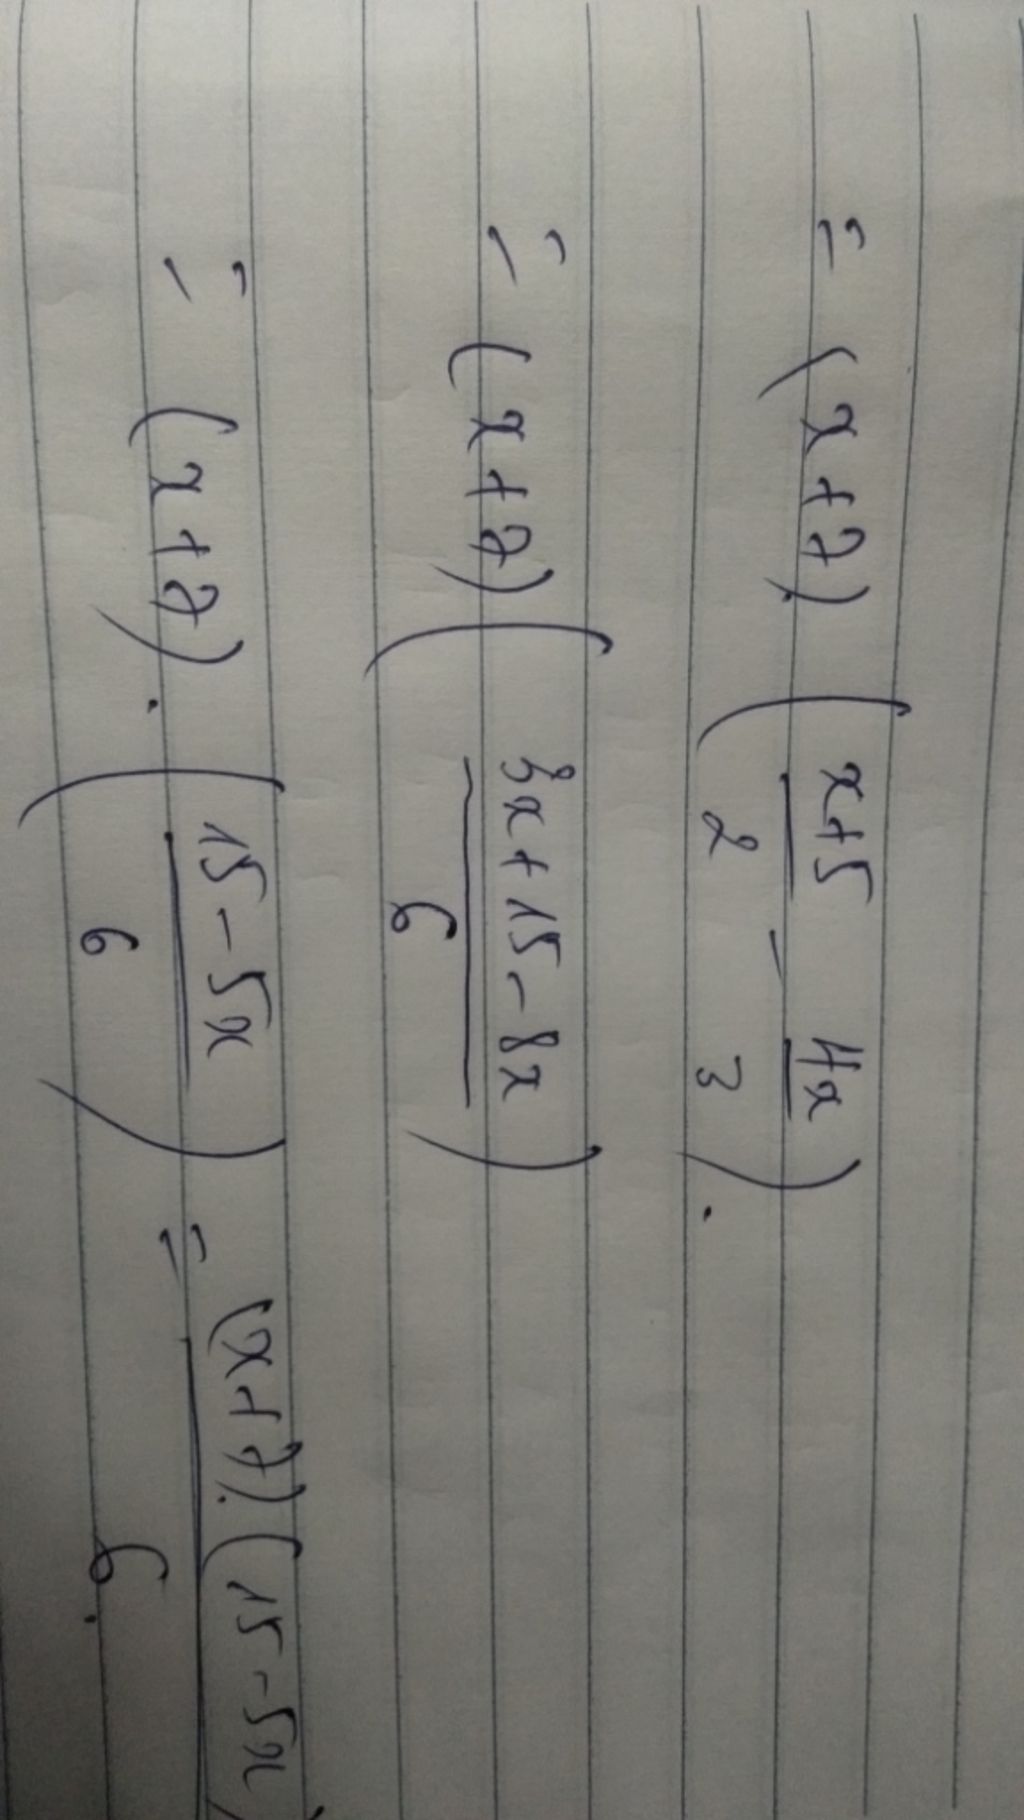 = (x+7) ( x+5/2 - 4x/3 ).
= (x+7) ( 3x+15-8x/6 )
= (x+7) . ( 15-5x/6 ) = (x+7).(15-5x)/6.